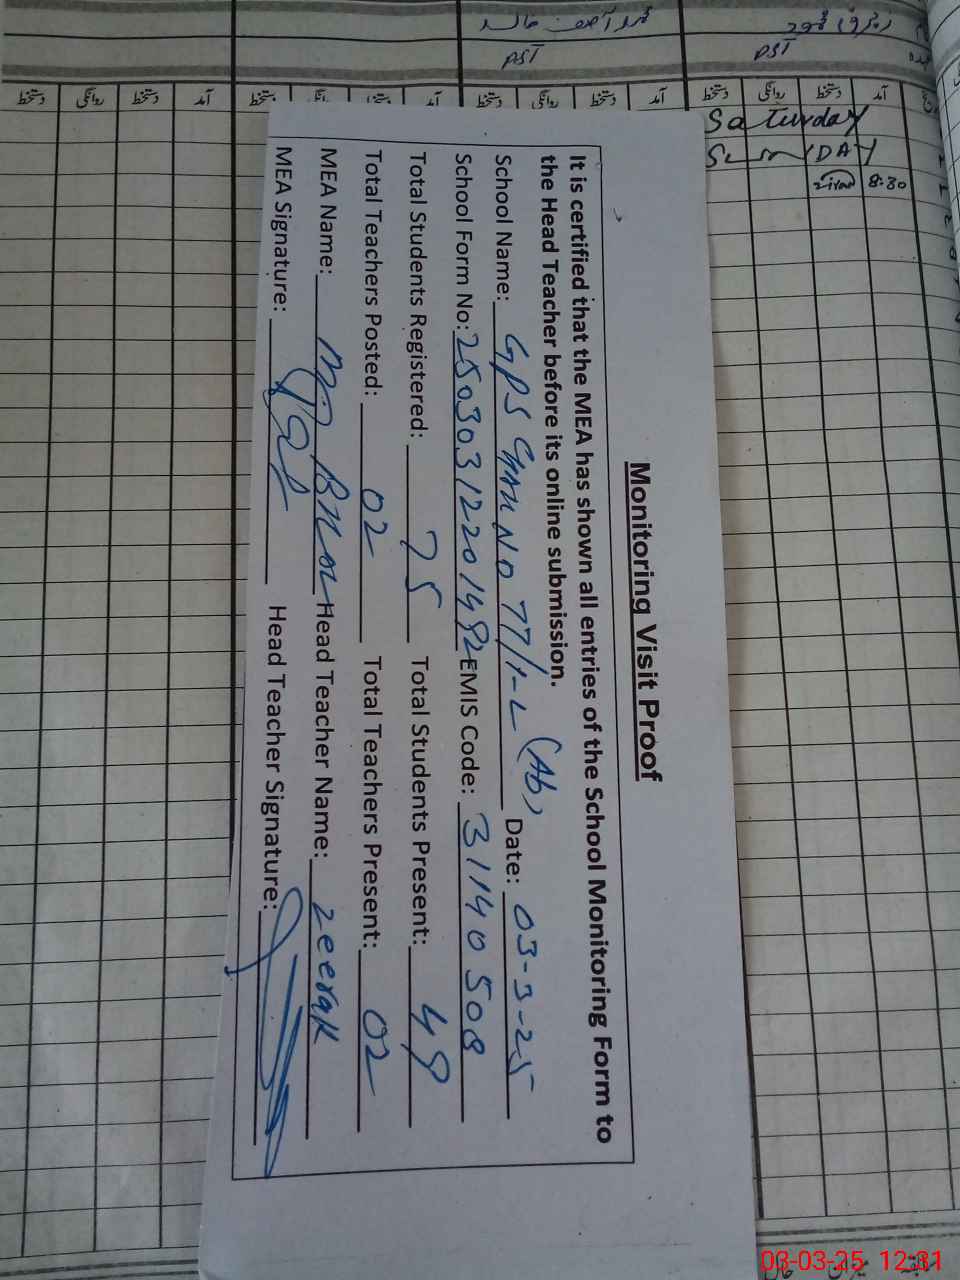 Monitoring Visit Proof
It is certified that the MEA has shown all entries of the School Monitoring Form to
the Head Teacher before its online submission.
School Name: GPS CHAK NO 77/1-L (Ab) Date: 03-3-25
School Form No: 250303122014 EMIS Code: 31140508
Total Students Registered: 75 Total Students Present: 49
Total Teachers Posted: 02 Total Teachers Present: 02
MEA Name: Head Teacher Name: Zeerak
MEA Signature: Head Teacher Signature:
PST PST
دستخط روانگی دستخط آمد دستخط روانگی دستخط آمد دستخط روانگی دستخط آمد دستخط روانگی دستخط آمد
Saturday
SUNDAY
8:30
03-03-25 12:31